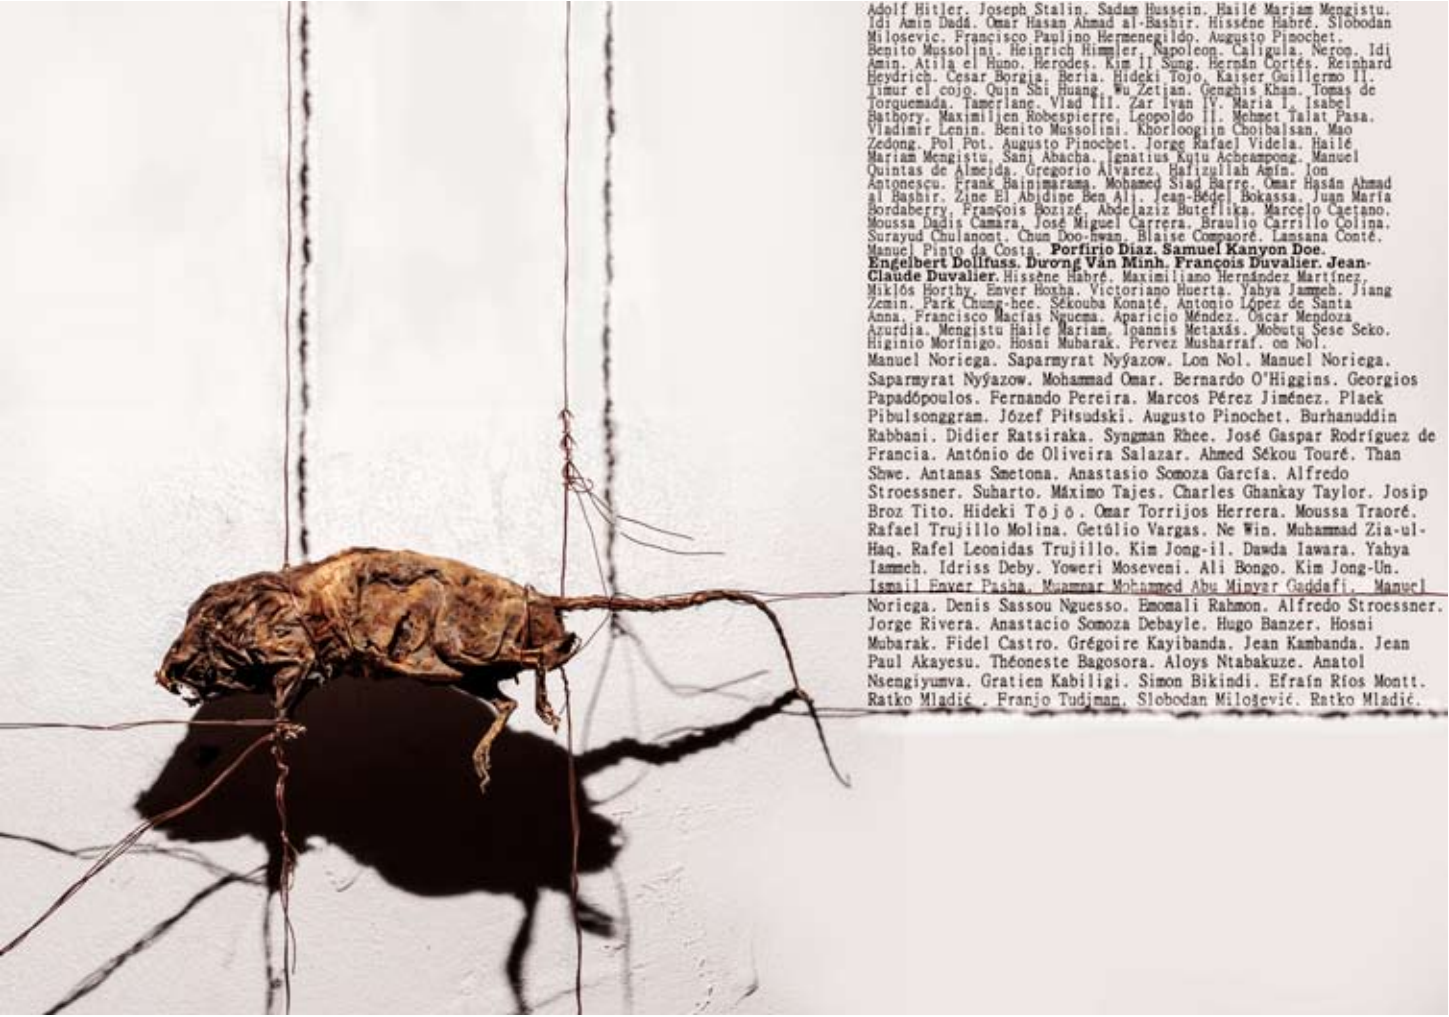 Adolf Hitler. Joseph Stalin. Sadam Hussein. Hailé Mariam Mengistu.
Idi Amin Dadá. Omar Hasan Ahmad al-Bashir. Hisséne Habré. Slobodan
Milosevic. Francisco Paulino Hermenegildo. Augusto Pinochet.
Benito Mussolini. Heinrich Himmler. Napoleon. Caligula. Neron. Idi
Amin. Atila el Huno. Herodes. Kim Il Sung. Hernán Cortés. Reinhard
Heydrich. Cesar Borgia. Beria. Hideki Tojo. Kaiser Guillermo II.
Timur el cojo. Quin Shi Huang. Wu Zetian. Genghis Khan. Tomas de
Torquemada. Tamerlane. Vlad III. Zar Ivan IV. Maria I. Isabel
Bathory. Maximilien Robespierre. Leopoldo II. Mehmet Talat Pasa.
Vladimir Lenin. Benito Mussolini. Khorloogiin Choibalsan. Mao
Zedong. Pol Pot. Augusto Pinochet. Jorge Rafael Videla. Hailé
Mariam Mengistu. Sani Abacha. Ignatius Kutu Acheampong. Manuel
Quintas de Almeida. Gregorio Álvarez. Hafizullah Amín. Ion
Antonescu. Frank Bainimarama. Mohamed Siad Barre. Omar Hasán Ahmad
al Bashir. Zine El Abidine Ben Ali. Jean-Bédel Bokassa. Juan María
Bordaberry. François Bozizé. Abdelaziz Buteflika. Marcelo Caetano.
Moussa Dadis Camara. José Miguel Carrera. Braulio Carrillo Colina.
Surayud Chulanont. Chun Doo-hwan. Blaise Compaoré. Lansana Conté.
Manuel Pinto da Costa. Porfirio Díaz. Samuel Kanyon Doe.
Engelbert Dollfuss. Dương Văn Minh. François Duvalier. Jean-
Claude Duvalier. Hissène Habré. Maximiliano Hernández Martínez.
Miklós Horthy. Enver Hoxha. Victoriano Huerta. Yahya Jammeh. Jiang
Zemin. Park Chung-hee. Sékouba Konaté. Antonio López de Santa
Anna. Francisco Macías Nguema. Aparicio Méndez. Óscar Mendoza
Azurdia. Mengistu Haile Mariam. Ioannis Metaxás. Mobutu Sese Seko.
Higinio Morínigo. Hosni Mubarak. Pervez Musharraf. on Nol.
Manuel Noriega. Saparmyrat Nyýazow. Lon Nol. Manuel Noriega.
Saparmyrat Nyýazow. Mohammad Omar. Bernardo O'Higgins. Georgios
Papadópoulos. Fernando Pereira. Marcos Pérez Jiménez. Plaek
Pibulsonggram. Józef Piłsudski. Augusto Pinochet. Burhanuddin
Rabbani. Didier Ratsiraka. Syngman Rhee. José Gaspar Rodríguez de
Francia. António de Oliveira Salazar. Ahmed Sékou Touré. Than
Shwe. Antanas Smetona. Anastasio Somoza García. Alfredo
Stroessner. Suharto. Máximo Tajes. Charles Ghankay Taylor. Josip
Broz Tito. Hideki Tōjō. Omar Torrijos Herrera. Moussa Traoré.
Rafael Trujillo Molina. Getúlio Vargas. Ne Win. Muhammad Zia-ul-
Haq. Rafel Leonidas Trujillo. Kim Jong-il. Dawda Iawara. Yahya
Iammeh. Idriss Deby. Yoweri Moseveni. Ali Bongo. Kim Jong-Un.
Ismail Enver Pasha. Muammar Mohammed Abu Minyar Gaddafi. Manuel
Noriega. Denis Sassou Nguesso. Emomali Rahmon. Alfredo Stroessner.
Jorge Rivera. Anastacio Somoza Debayle. Hugo Banzer. Hosni
Mubarak. Fidel Castro. Grégoire Kayibanda. Jean Kambanda. Jean
Paul Akayesu. Théoneste Bagosora. Aloys Ntabakuze. Anatol
Nsengiyumva. Gratien Kabiligi. Simon Bikindi. Efraín Ríos Montt.
Ratko Mladić . Franjo Tudjman. Slobodan Milošević. Ratko Mladić.